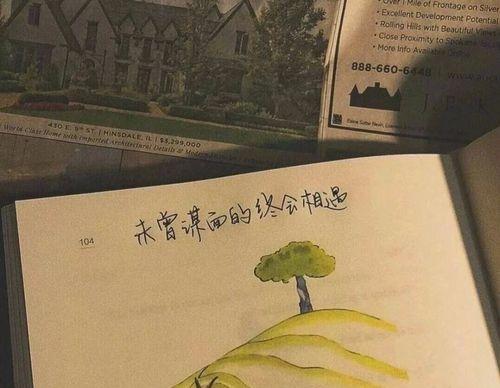 1 Mile of Frontage on Silver
• Excellent Development Potential
• Rolling Hills with Beautiful Views
• Close Proximity to Spokane
• More Info Available
888-660-6448
430 E. 9TH ST. | HINSDALE, IL | $3,299,000
World Class Home with Imported Architectural Details &
104
未曾谋面的终会相遇